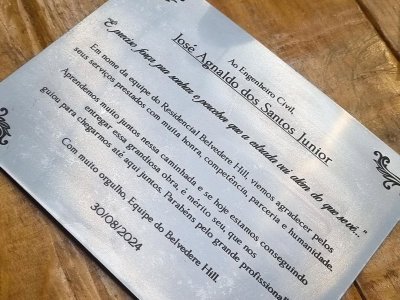 Ao Engenheiro Civil,
José Agnaldo dos Santos Junior
"É preciso força pra sonhar e perceber que a estrada vai além do que se vê..."
Em nome da equipe do Residencial Belvedere Hill, viemos agradecer pelos
seus serviços prestados com muita honra, competência, parceria e humanidade.
Aprendemos muito juntos nessa caminhada e se hoje estamos conseguindo
entregar essa grandiosa obra, é mérito seu, que nos
guiou para chegarmos até aqui juntos. Parabéns pelo grande profissional
Com muito orgulho, Equipe do Belvedere Hill.
30/08/2024